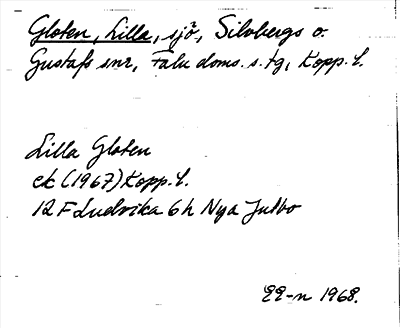 Gloten, Lilla, sjö, Silvbergs o.
Gustafs snr, Falu doms. s. tg, Kopp. l.
Lilla Gloten
ek (1967) Kopp. l.
12 F Ludvika 6 h Nya Julbo
1968.